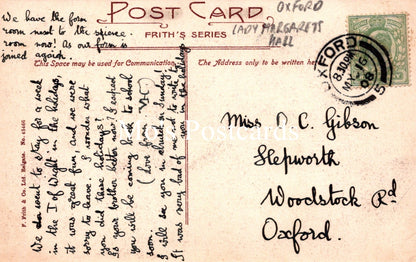 We have the form
room next to the science
room now! As our form is
joined again.
POST CARD
FRITH'S SERIES
OXFORD
LADY MARGARETS
HALL
This Space may be used for Communication.
The Address only to be written here.
OXFORD
MY 16
08
5
Miss D. C. Gibson
Hepworth
Woodstock Rd
Oxford.
We went to stay for a week
in the I of Wight in the holidays,
it was great fun, and we were
sorry to leave. I wonder what
you did these holidays.
Is your brother better now? I expect
you will be coming back to school
soon. (Love from
I will see you in church on Sunday.
It was very bad of me not to write
in the holidays
F. Frith & Co. Ltd. Reigate. No.
Postcards